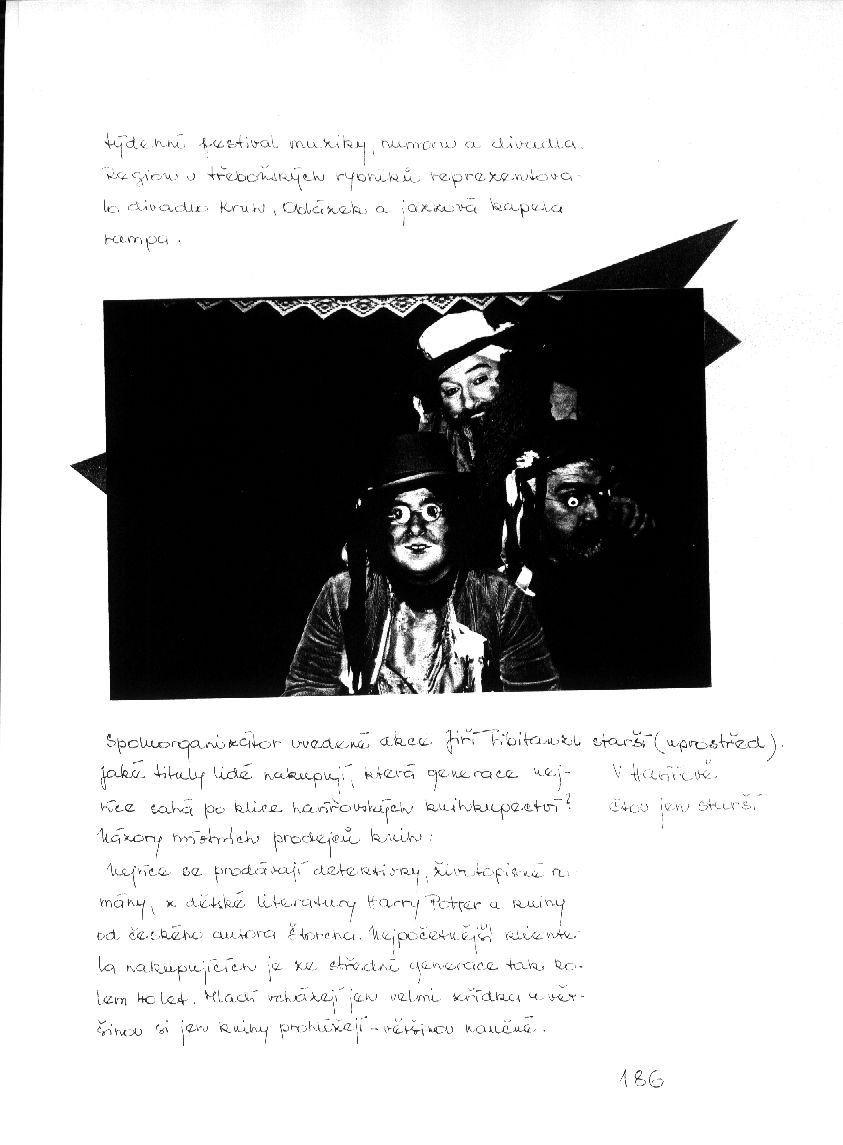 týdenní festival muziky, humoru a divadla.
Region u třeboňských rybníků reprezentova-
lo divadlo Kruh, Otázek a jazzová kapela
rampa.
Spoluorganizátor uvedené akce Jiří Tibitanzl starší (uprostřed).
Jaké tituly lidé nakupují, která generace nej-
více sahá po klice havířovských knihkupectví?
Názory místních prodejců knih:
V Havířově
čtou jen starší
Nejvíce se prodávají detektivky, životopisné ro-
mány, z dětské literatury Harry Potter a knihy
od českého autora Štorcha. Nejpočetnější kliente-
la nakupujících je ze střední generace tak ko-
lem 40 let. Mladí vcházejí jen velmi zřídka a vět-
šinou si jen knihy prohlížejí - většinou naučné.
186